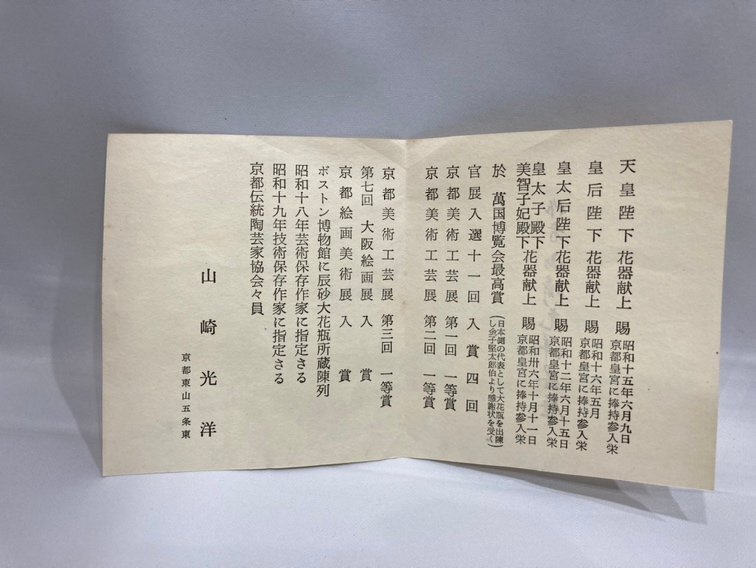 天皇陛下花器献上 賜 昭和十五年六月九日 京都皇宮に捧持参入栄
皇后陛下花器献上 賜 昭和十六年五月 京都皇宮に捧持参入栄
皇太后陛下花器献上 賜 昭和十二年六月十五日 京都皇宮に捧持参入栄
皇太子殿下 美智子妃殿下 花器献上 賜 昭和卅六年十月十一日 京都皇宮に捧持参入栄
於 萬国博覧会最高賞 (日本側の代表として大花瓶を出陳し金子堅太郎伯より感謝状を受く)
官展入選十一回 入賞四回
京都美術工芸展 第一回 一等賞
京都美術工芸展 第二回 一等賞
京都美術工芸展 第三回 一等賞
第七回 大阪絵画展 入賞
京都絵画美術展 入賞
ボストン博物館に辰砂大花瓶所蔵陳列
昭和十八年芸術保存作家に指定さる
昭和十九年技術保存作家に指定さる
京都伝統陶芸家協会々員
山崎光洋
京都東山五条東